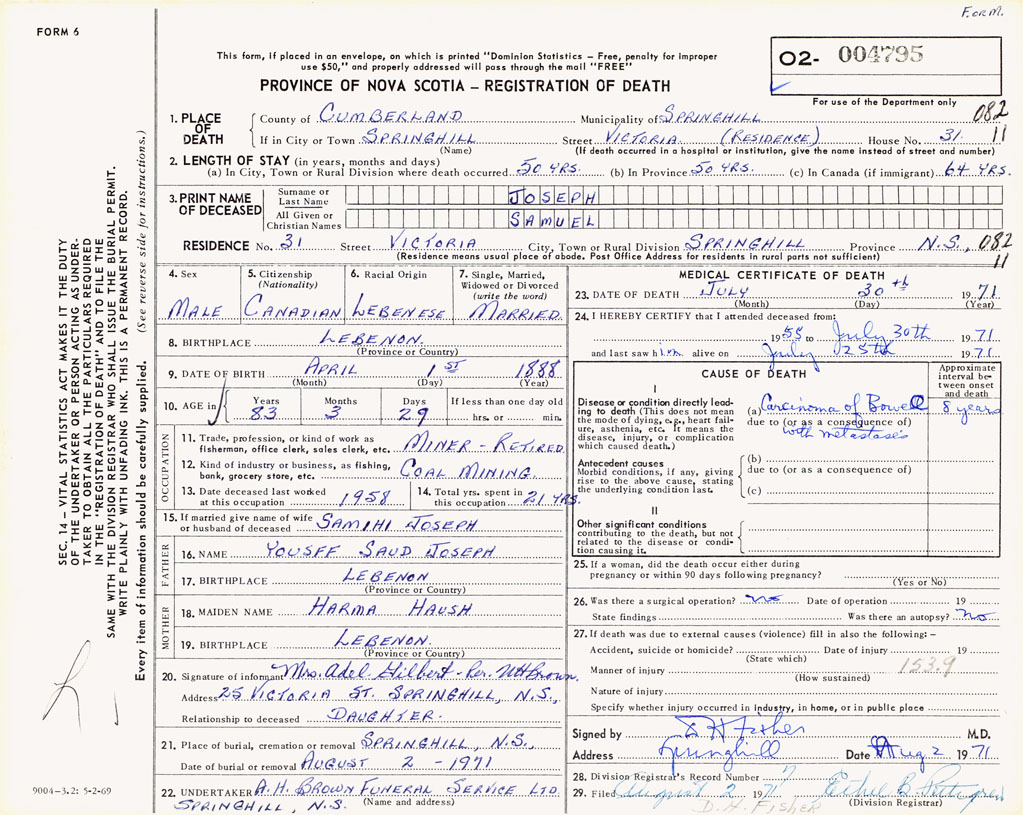 Form.
FORM 6
This form, if placed in an envelope, on which is printed "Dominion Statistics – Free, penalty for improper
use $50," and properly addressed will pass through the mail "FREE"
O2- 004795
For use of the Department only
PROVINCE OF NOVA SCOTIA – REGISTRATION OF DEATH
1. PLACE OF DEATH
County of CUMBERLAND Municipality of SPRINGHILL 082
If in City or Town SPRINGHILL Street VICTORIA (RESIDENCE) House No. 31. 11
(Name) (If death occurred in a hospital or institution, give the name instead of street and number)
2. LENGTH OF STAY (in years, months and days)
(a) In City, Town or Rural Division where death occurred 50 YRS. (b) In Province 50 YRS. (c) In Canada (if immigrant) 64 YRS.
3. PRINT NAME OF DECEASED
Surname or Last Name JOSEPH
All Given or Christian Names SAMUEL
RESIDENCE No. 31 Street VICTORIA City, Town or Rural Division SPRINGHILL Province N.S., 082
(Residence means usual place of abode. Post Office Address for residents in rural parts not sufficient) 11
4. Sex MALE
5. Citizenship (Nationality) CANADIAN
6. Racial Origin LEBENESE
7. Single, Married, Widowed or Divorced (write the word) MARRIED.
8. BIRTHPLACE LEBENON.
(Province or Country)
9. DATE OF BIRTH APRIL 1ST 1888
(Month) (Day) (Year)
10. AGE in Years 83 Months 3 Days 29 If less than one day old hrs. or min.
OCCUPATION
11. Trade, profession, or kind of work as
fisherman, office clerk, sales clerk, etc. MINER – RETIRED
12. Kind of industry or business, as fishing,
bank, grocery store, etc. COAL MINING.
13. Date deceased last worked
at this occupation 1958
14. Total yrs. spent in
this occupation 21 YRS.
15. If married give name of wife
or husband of deceased SAMIHI JOSEPH
FATHER
16. NAME YOUSFF SAUD JOSEPH
17. BIRTHPLACE LEBENON
(Province or Country)
MOTHER
18. MAIDEN NAME HARMA HAUSH
19. BIRTHPLACE LEBENON.
(Province or Country)
20. Signature of informant Mrs. Adel Gilbert - Per. WHBrown.
Address 25 VICTORIA ST. SPRINGHILL, N.S.,
Relationship to deceased DAUGHTER.
21. Place of burial, cremation or removal SPRINGHILL, N.S.,
Date of burial or removal AUGUST 2 - 1971
22. UNDERTAKER A.H. BROWN FUNERAL SERVICE LTD.
SPRINGHILL, N.S. (Name and address)
MEDICAL CERTIFICATE OF DEATH
23. DATE OF DEATH JULY 30th 1971
(Month) (Day) (Year)
24. I HEREBY CERTIFY that I attended deceased from:
1958 to July 30th 1971
and last saw him alive on July 25th 1971
CAUSE OF DEATH
Approximate interval between onset and death
I
Disease or condition directly leading to death (This does not mean
the mode of dying, e.g., heart failure, asthenia, etc. It means the
disease, injury, or complication
which caused death.)
(a) Carcinoma of Bowel 8 years
due to (or as a consequence of)
with metastases
Antecedent causes
Morbid conditions, if any, giving
rise to the above cause, stating
the underlying condition last.
(b)
due to (or as a consequence of)
(c)
II
Other significant conditions
contributing to the death, but not
related to the disease or condition causing it.
25. If a woman, did the death occur either during
pregnancy or within 90 days following pregnancy?
(Yes or No)
26. Was there a surgical operation? no Date of operation 19
State findings Was there an autopsy? no
27. If death was due to external causes (violence) fill in also the following: –
Accident, suicide or homicide? Date of injury 19
(State which)
Manner of injury 153.9
(How sustained)
Nature of injury
Specify whether injury occurred in industry, in home, or in public place
Signed by E H Fisher M.D.
Address Springhill Date Aug 2 1971
28. Division Registrar's Record Number 7
29. Filed August 2 1971 Ethel B
D. H. FISHER (Division Registrar)
SEC. 14 – VITAL STATISTICS ACT MAKES IT THE DUTY
OF THE UNDERTAKER OR PERSON ACTING AS UNDERTAKER TO OBTAIN ALL THE PARTICULARS REQUIRED
IN THE "REGISTRATION OF DEATH" AND TO FILE THE
SAME WITH THE DIVISION REGISTRAR WHO SHALL ISSUE THE BURIAL PERMIT.
WRITE PLAINLY WITH UNFADING INK. THIS IS A PERMANENT RECORD.
Every item of information should be carefully supplied. (See reverse side for instructions.)
9004-3.2: 5-2-69